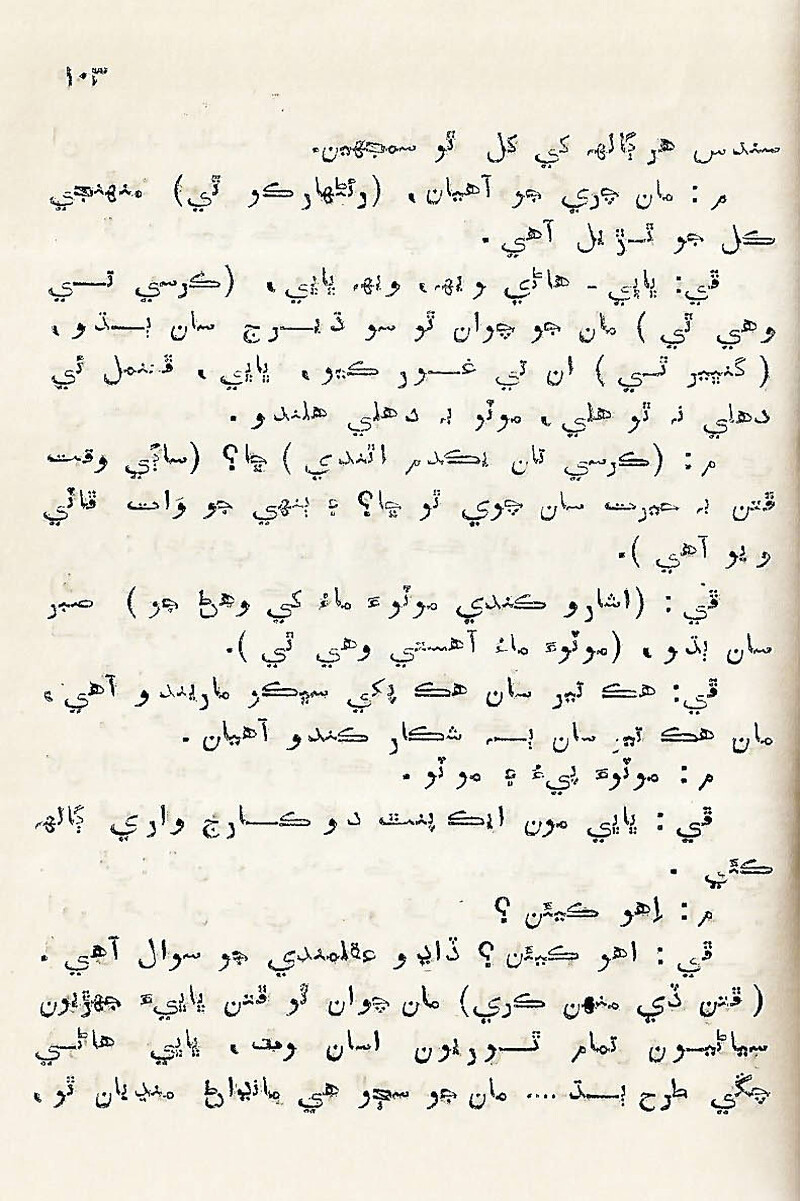 ۱۰۳
سندس هر ڳالهہ کي کل ٿو سمجهين.
م : مان چري جو آهيان، (رئڻهارڪو ٿي) منهنجي
کل جو ٿڙيل آهي .
ڦي: ڀاڀي - هاڻي ويهہ، ويهہ ڀاڀي، (ڪرسي تي
وهي ٿي) مان جو چوان ٿو سو ڌيرج سان ٻڌو،
(گنڀير ٿي) ان تي غور ڪيو، ڀاڀي، ڦنمل ئي
دهلي نہ ٿو هلي، موٽو بہ دهلي هلندو .
م : (ڪرسي تان يڪدم اٿندي) ڇا؟ (ساڳي وقت
ڦتن بہ حيرت سان چوي ٿو ڇا؟ ۽ ٻنهي جو وَات ڦاٽي
ويو آهي).
ڦي : (اشارو ڪندي موٽوءَ ماءُ کي وهڻ جو) صبر
سان ٻڌو، (موٽوءَ ماءُ آهستي وهي ٿي).
ڦي: هڪ تير سان هڪ پکي سڀڪو ماريندو آهي،
مان هڪ تير سان ٻہ شڪار ڪندو آهيان .
م : موٽوءَ پيءُ ۽ موٽو .
ڦي : ڀاڀي مون ايڪ پنٿ دو ڪارج واري ڳالهہ
ڪئي .
م : اِهو ڪيئن ؟
ڦي : اهو ڪيئن ؟ ڏاڍو عقلمندي جو سوال آهي .
(ڦتن ڏي منهن ڪري) مان چوان ٿو ڦتن ڀاڀيءَ جهڙيون
سياڻيون تمام ٿوريون اسان وٽ، ڀاڀي هاڻي
چڱي طرح ٻڌ .... مان جو سڄو هي مانڊاڻ منڊيان ٿو،